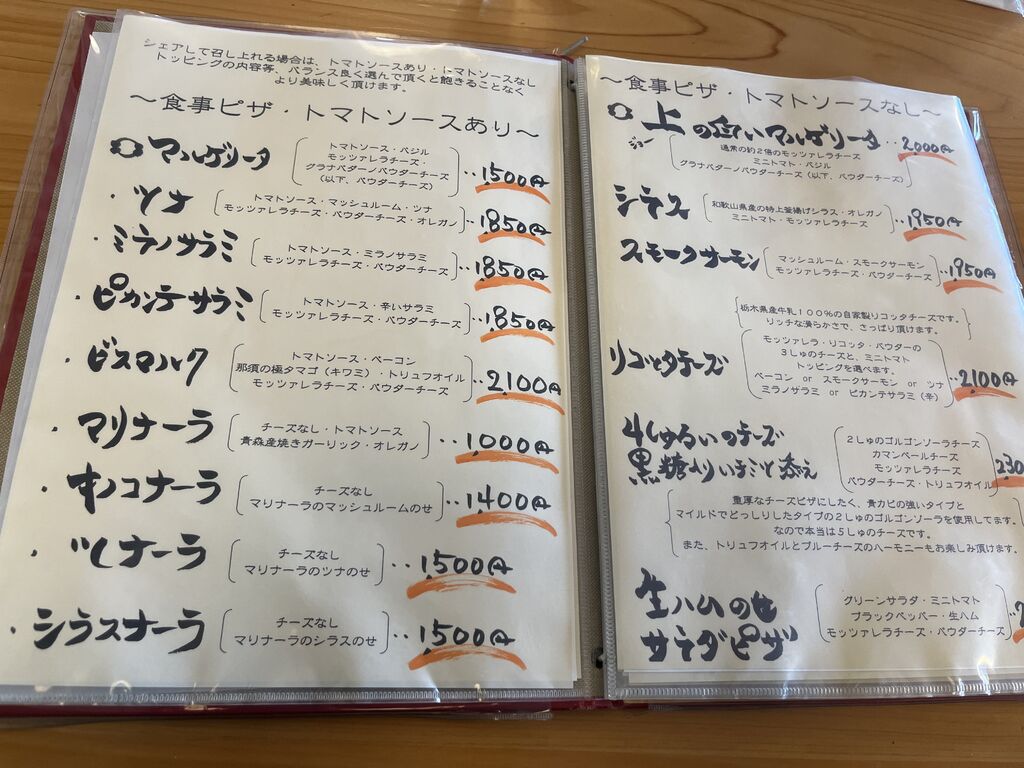 シェアして召し上れる場合は、トマトソースあり・トマトソースなし
トッピングの内容等、バランス良く選んで頂くと飽きることなく
より美味しく頂けます。
～食事ピザ・トマトソースあり～
マルゲリータ
トマトソース・バジル
モッツァレラチーズ・
グラナパダーノパウダーチーズ
(以下、パウダーチーズ)
‥1500円
・ツナ
トマトソース・マッシュルーム・ツナ
モッツァレラチーズ・パウダーチーズ・オレガノ
‥1,850円
・ミラノサラミ
トマトソース・ミラノサラミ
モッツァレラチーズ・パウダーチーズ
‥1850円
・ピカンテサラミ
トマトソース・辛いサラミ
モッツァレラチーズ・パウダーチーズ
‥1,850円
・ビスマルク
トマトソース・ベーコン
那須の極タマゴ(キワミ)・トリュフオイル
モッツァレラチーズ・パウダーチーズ
‥2100円
・マリナーラ
チーズなし・トマトソース
青森産焼きガーリック・オレガノ
‥1,000円
・キノコナーラ
チーズなし
マリナーラのマッシュルームのせ
‥1,400円
・ツナーラ
チーズなし
マリナーラのツナのせ
‥1,500円
・シラスナーラ
チーズなし
マリナーラのシラスのせ
‥1,500円
～食事ピザ・トマトソースなし～
上の白いマルゲリータ
ジョー
通常の約２倍のモッツァレラチーズ
ミニトマト・バジル
グラナパダーノパウダーチーズ(以下、パウダーチーズ)
‥2,000円
シラス
和歌山県産の特上釜揚げシラス・オレガノ
ミニトマト・モッツァレラチーズ
‥1,950円
スモークサーモン
マッシュルーム・スモークサーモン
モッツァレラチーズ・パウダーチーズ
‥1950円
栃木県産牛乳１００％の自家製リコッタチーズです。
リッチな滑らかさで、さっぱり頂けます。
リコッタチーズ
モッツァレラ・リコッタ・パウダーの
３しゅのチーズと、ミニトマト
トッピングを選べます。
ベーコン or スモークサーモン or ツナ
ミラノサラミ or ピカンテサラミ(辛)
‥2100円
4しゅるいのチーズ
黒糖くりいちじく添え
２しゅのゴルゴンゾーラチーズ
カマンベールチーズ
モッツァレラチーズ
パウダーチーズ・トリュフオイル
重厚なチーズピザにしたく、青カビの強いタイプと
マイルドでどっしりしたタイプの２しゅのゴルゴンゾーラを使用してます。
なので本当は５しゅのチーズです。
また、トリュフオイルとブルーチーズのハーモニーもお楽しみ頂けます。
生ハムのせ
サラダピザ
グリーンサラダ・ミニトマト
ブラックペッパー・生ハム
モッツァレラチーズ・パウダーチーズ